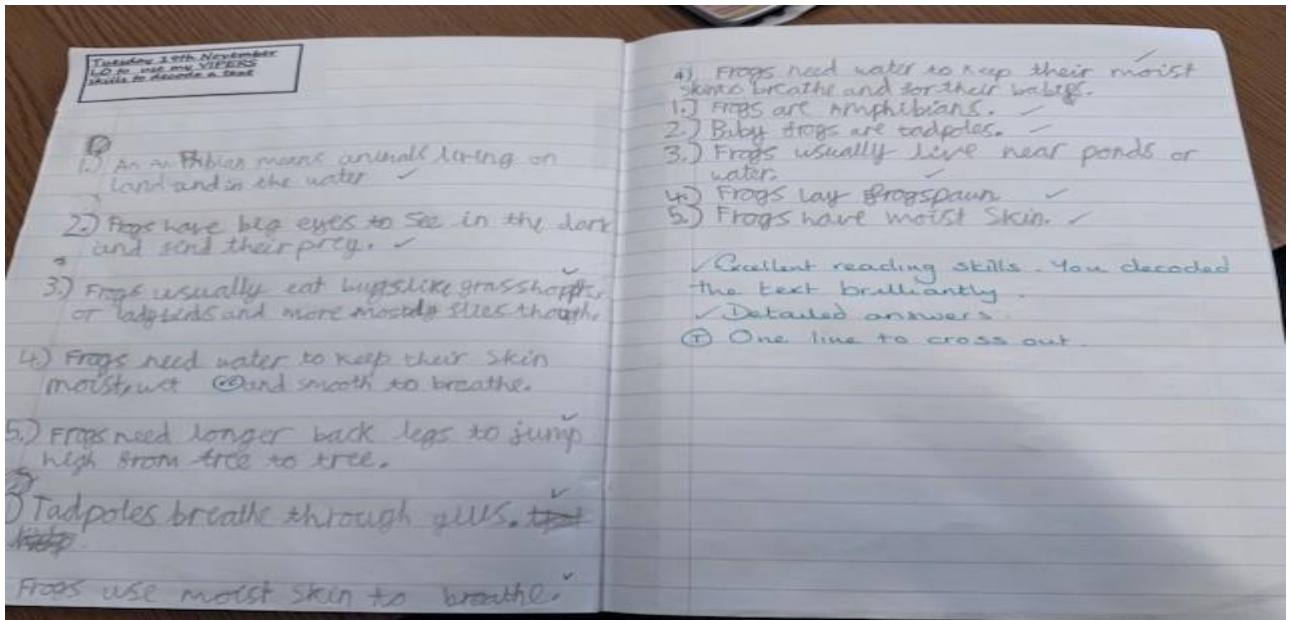 Tuesday 19th November
LO to use my VIPERS
skills to decode a text
1.) An amphibian means animals living on
land and in the water ✓
2.) Frogs have big eyes to see in the dark
and find their prey. ✓
3.) Frogs usually eat bugs like grasshopper
or ladybirds and more mostly flies though.
4.) Frogs need water to keep their skin
moist, wet and smooth to breathe.
5.) Frogs need longer back legs to jump
high from tree to tree.
) Tadpoles breathe through gills.
Frogs use moist skin to breathe.
4) Frogs need water to keep their moist
skin breathe and for their babies.
1.) Frogs are Amphibians. ✓
2.) Baby frogs are tadpoles. ✓
3.) Frogs usually live near ponds or
water. ✓
4.) Frogs lay frogspawn ✓
5.) Frogs have moist Skin. ✓
✓ Excellent reading skills. You decoded
the text brilliantly.
✓ Detailed answers.
Ⓣ One line to cross out.